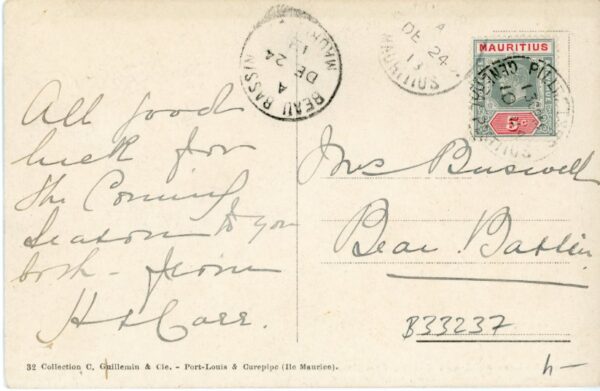 All good
luck for
the Coming
Season to you
both - from
H & Carr.
BEAU BASSIN
A
DE 24
13
MAUR
A
DE 24
13
MAURITIUS
MAURITIUS
5c
13
MAURITIUS
Mrs Buswell
Beau Bassin
B33237
4-
32 Collection C. Guillemin & Cie. - Port-Louis & Curepipe (Ile Maurice).